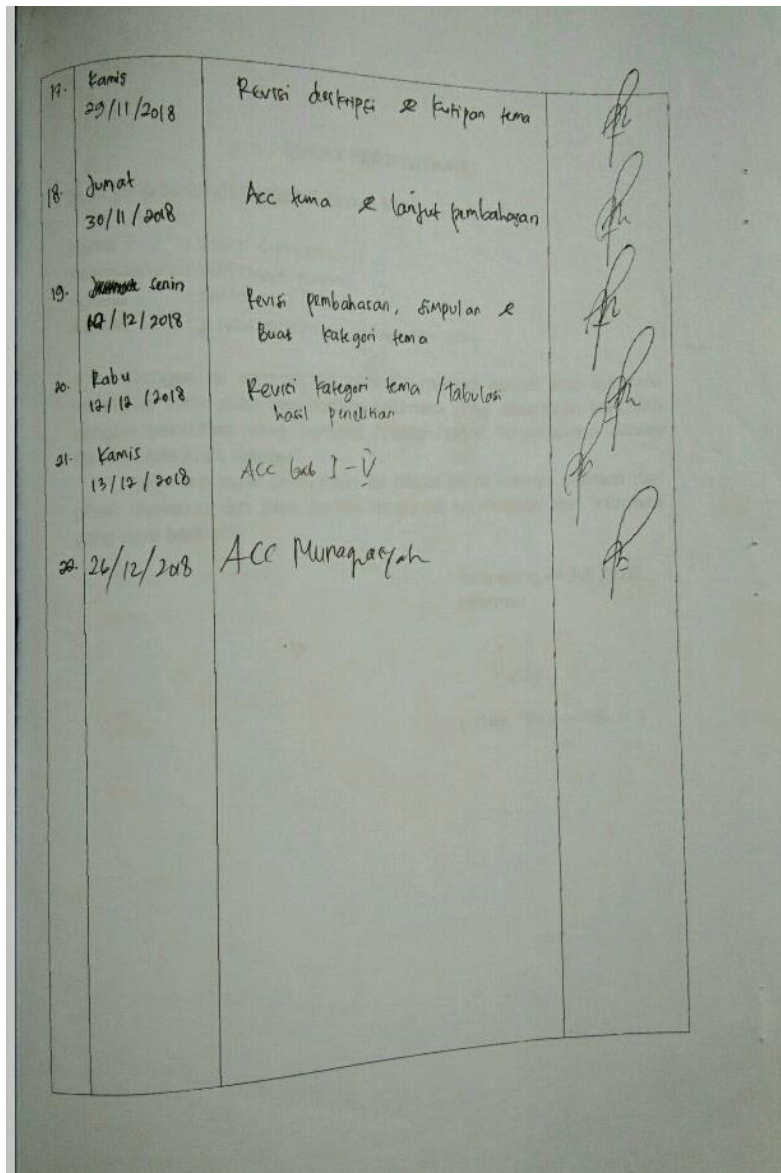 17. Kamis
29/11/2018
Revisi deskripsi & kutipan tema
18. Jumat
30/11/2018
Acc tema & lanjut pembahasan
19. Senin
10/12/2018
Revisi pembahasan, simpulan &
Buat kategori tema
20. Rabu
12/12/2018
Revisi kategori tema / tabulasi
hasil penelitian
21. Kamis
13/12/2018
ACC bab I - V
22. 26/12/2018
ACC Munaqasyah